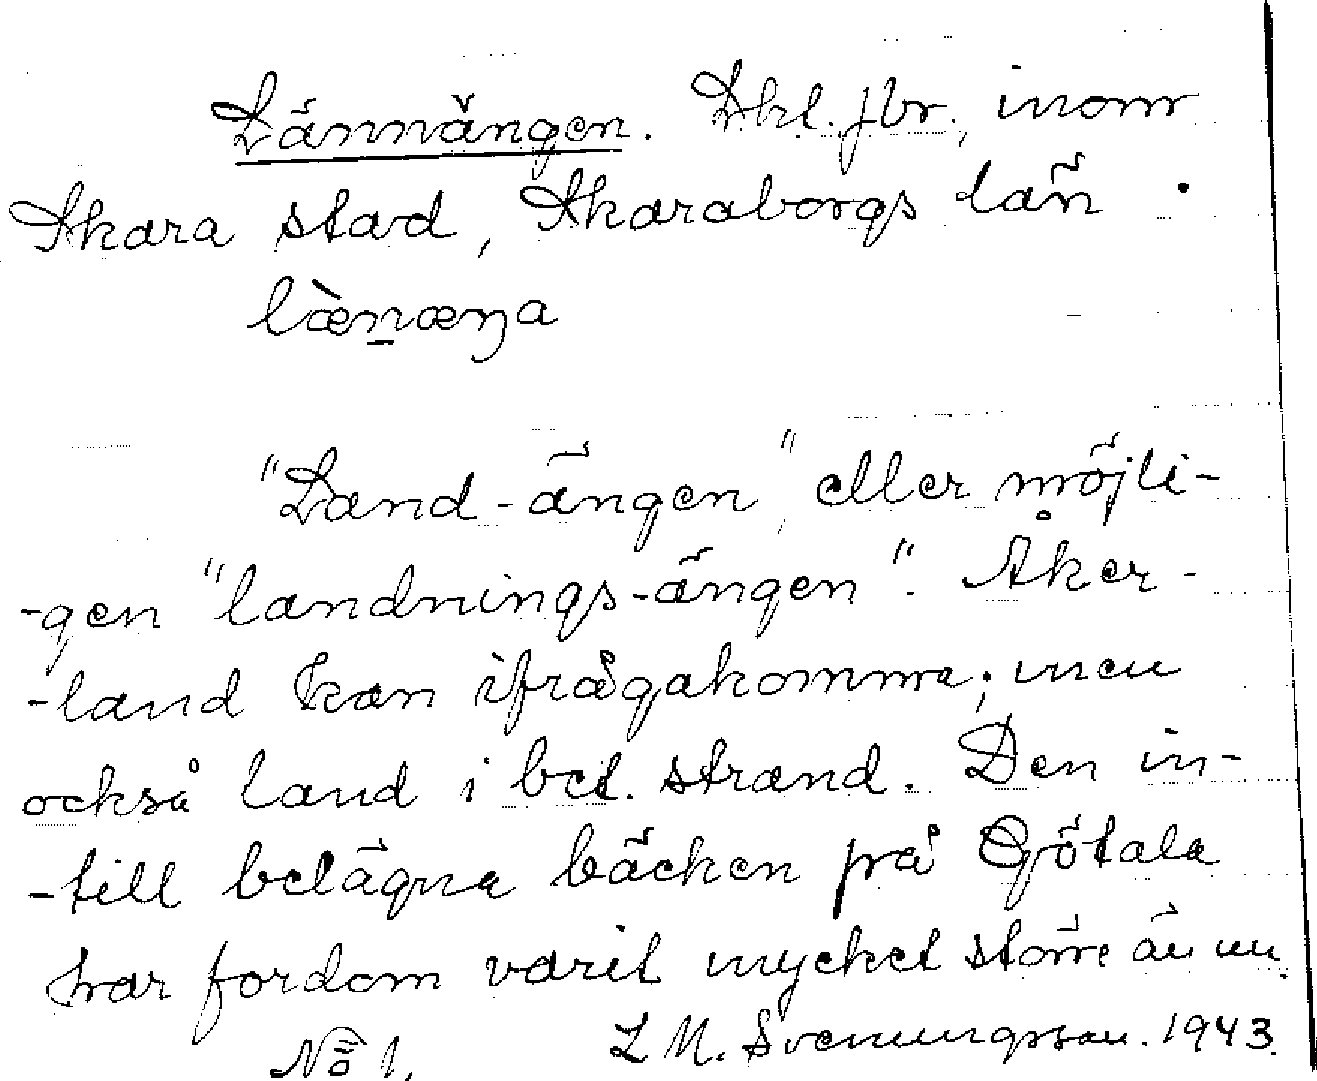 Lännängen. Skl. jbr., inom
Skara stad, Skaraborgs län.
lænæŋa
"Land-ängen", eller möjli-
-gen "landnings-ängen". Åker-
-land kan ifrågakomma; men
också land i bet. strand. Den in-
-till belägna bäcken på Götala
har fordom varit mycket större än nu.
No 1. L M. Svenungsson. 1943.